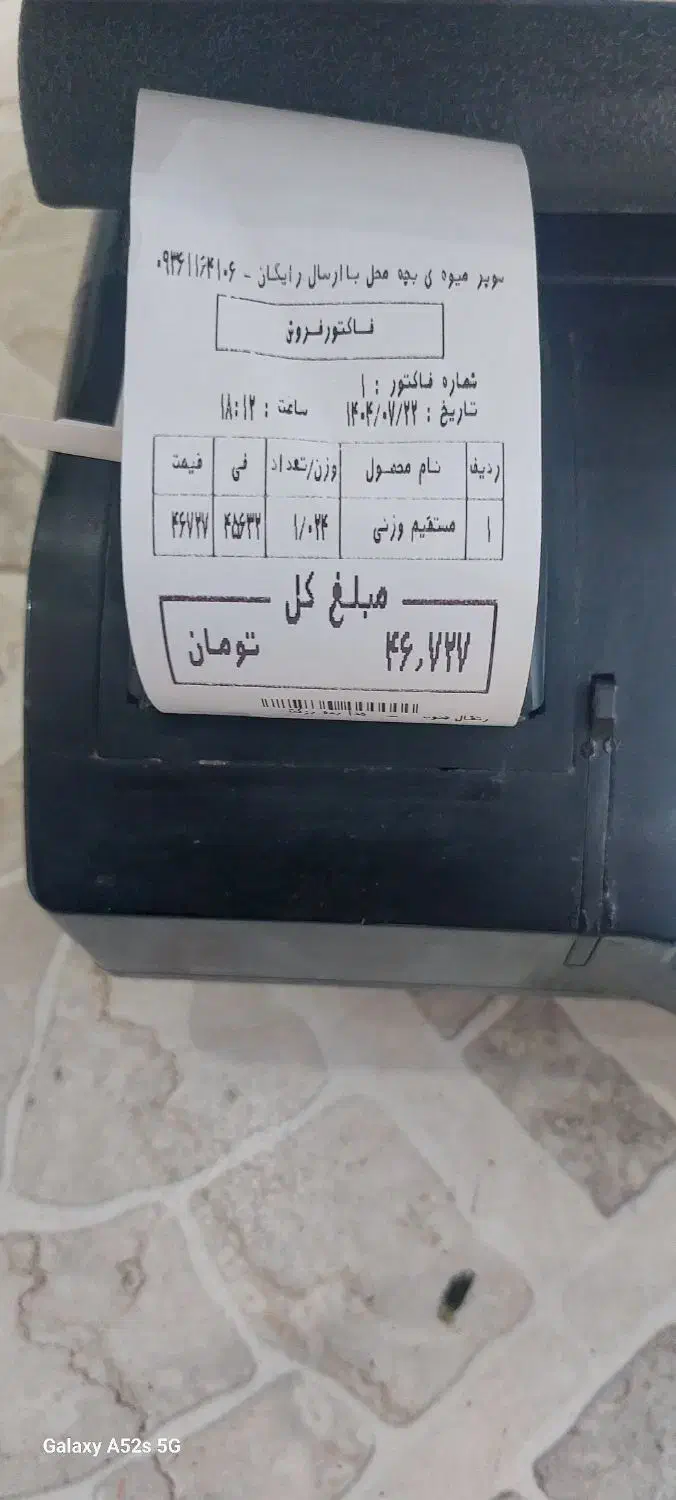 سوپر میوه ی بچه محل با ارسال رایگان - ۰۹۳۶۱۱۶۴۱۰۶
فاکتور فروش
شماره فاکتور : ۱
تاریخ : ۱۴۰۴/۰۷/۲۲ ساعت : ۱۸:۱۲
ردیف نام محصول وزن/تعداد فی قیمت
۱ مستقیم وزنی ۱/۰۲۴ ۴۵۶۳۲ ۴۶۷۲۷
مبلغ کل
۴۶,۷۲۷ تومان
Galaxy A52s 5G